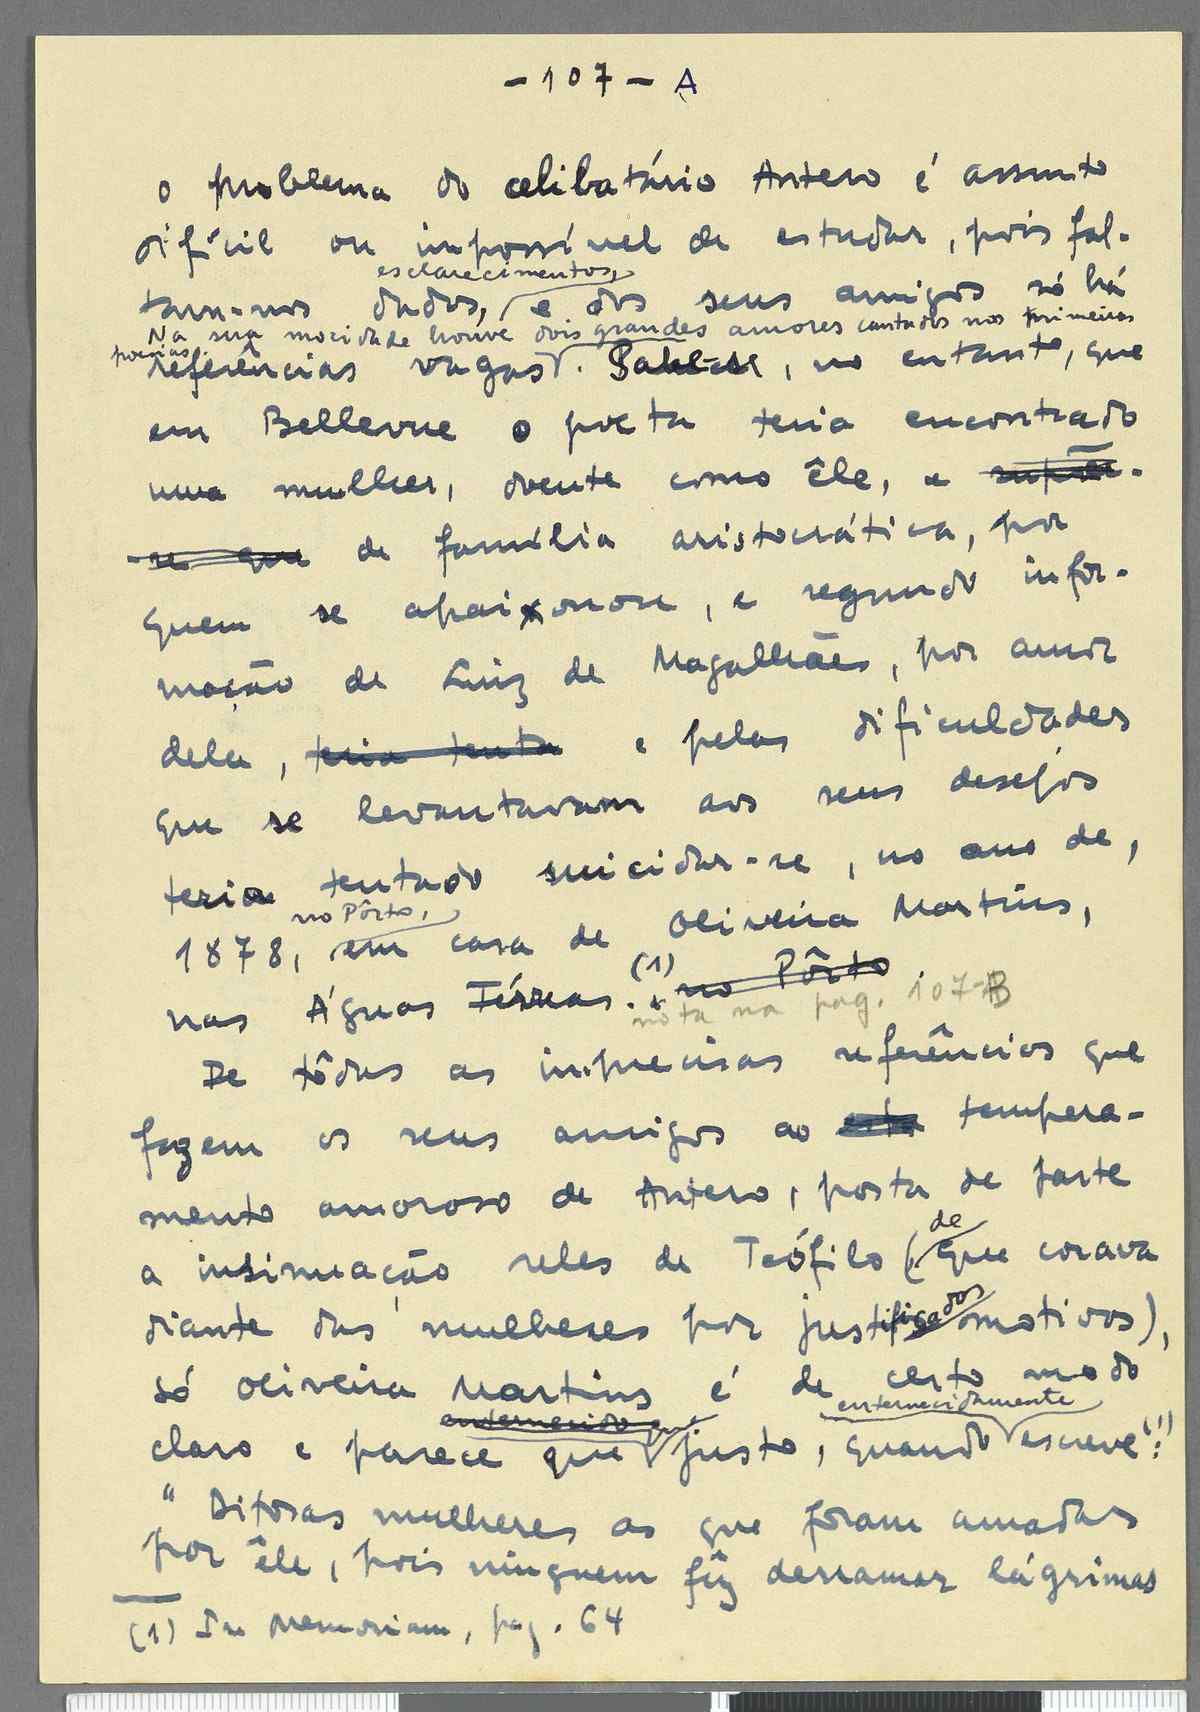 -107- A
o problema do celibatário Antero é assunto
difícil ou impossível de estudar, pois fal-
esclarecimentos,
tam-nos dados, e dos seus amigos só há
Na sua mocidade houve dois grandes amores cantados nas primeiras
poesias.
referências vagas. Sabe-se, no entanto, que
em Bellevue o poeta teria encontrado
uma mulher, doente como êle, e supõe-
-se que de família aristocrática, por
quem se apaixonou, e segundo infor-
mação de Luiz de Magalhães, por amor
dela, teria tenta e pelas dificuldades
que se levantavam aos seus desejos
teria tentado suicidar-se, no ano de,
no Pôrto,
1878, em casa de Oliveira Martins,
nas Águas Férreas. (1) no Pôrto
nota na pag. 107-B
De tôdas as imprecisas referências que
fazem os seus amigos ao este tempera-
mento amoroso de Antero, posta de parte
a insinuação reles de Teófilo (de que corava
diante das mulheres por justificados motivos),
só Oliveira Martins é de certo modo
enternecido que
enternecidamente
claro e parece que justo, quando escreve (1):
" Ditosas mulheres as que foram amadas
por êle, pois ninguem fêz derramar lágrimas
(1) In Memoriam, pag. 64